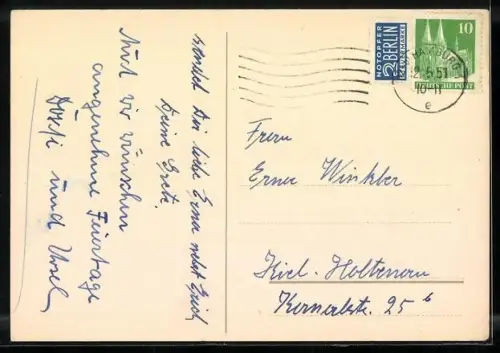 wünscht Dir liebe Erna nebst Erich
Deine Grete.
Auch wir wünschen
angenehme Feiertage
und
NOTOPFER
2 BERLIN
STEUERMARKE
10
DEUTSCHE POST
HAMBURG
12.5.51
10-11
e
Frau
Erna Winkler
Kiel-Holtenau
25 b